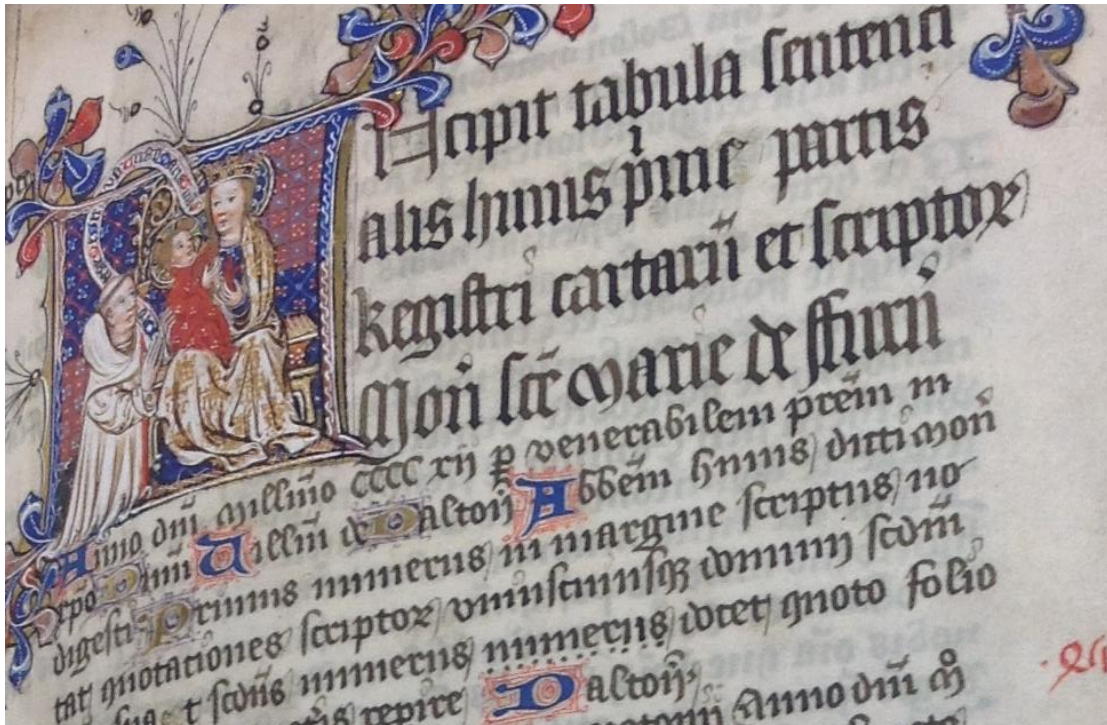 Incipit tabula sentenci
alis huius p̄me partis
Registri cartarū et scriptor
Mon̄ scē Marie de ffurn̄
Anno dn̄i Millīmo CCCC xij ꝑ venerabilem pr̄em in
xp̄o Dn̄m Will̄m de Dalton̄ Abb̄em huius dicti Mon̄
digesti Primus numerus in margine scriptus no
tat quotaciones scriptor vniuscuiusqꝫ domini scdm̄
t scd̄us numerus numerus docet quoto folio
repire Dalton̄
Anno dn̄i Mͦ